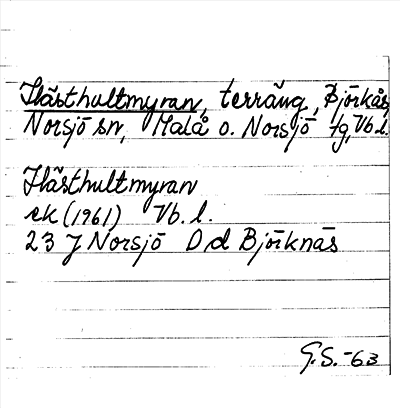 Hästhultmyran, terräng, Björkås,
Norsjö sn, Malå o. Norsjö tg, Vb.l.
Hästhultmyran
ek (1961) Vb. l.
23 J Norsjö D d Björknäs
G.S. -63